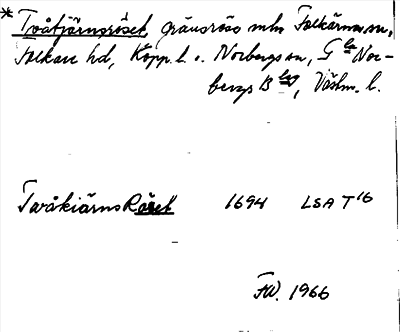 * Tvåtjärnsröset, gränsröse mln Folkärna sn,
Folkare hd, Kopp. l. o. Norbergs sn, Gla Nor-
bergs Blag, Västm. l.
TwåkiärnsRöset 1694 LSA T16
FW. 1966